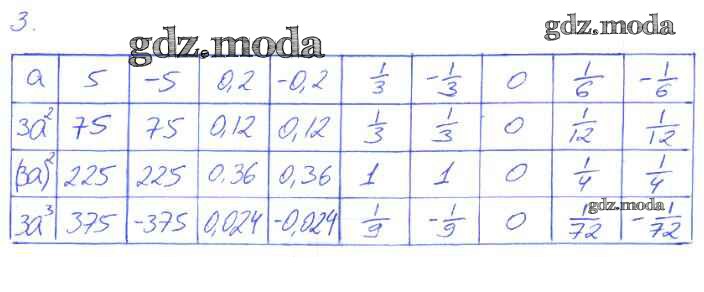 3.
gdz.moda
gdz.moda
a 5 -5 0,2 -0,2 1/3 -1/3 0 1/6 -1/6
3a² 75 75 0,12 0,12 1/3 1/3 0 1/12 1/12
(3a)² 225 225 0.36 0,36 1 1 0 1/4 1/4
gdz.moda
3a³ 375 -375 0,024 -0,024 1/9 -1/9 0 1/72 -1/72